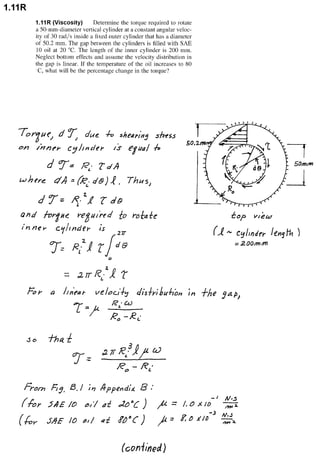 1.11R
1.11R (Viscosity) Determine the torque required to rotate
a 50-mm-diameter vertical cylinder at a constant angular veloc-
ity of 30 rad/s inside a fixed outer cylinder that has a diameter
of 50.2 mm. The gap between the cylinders is filled with SAE
10 oil at 20 °C. The length of the inner cylinder is 200 mm.
Neglect bottom effects and assume the velocity distribution in
the gap is linear. If the temperature of the oil increases to 80
°C, what will be the percentage change in the torque?
Torque, d𝒯, due to shearing stress
on inner cylinder is equal to
d𝒯 = Rᵢ τ dA
where dA = (Rᵢ dθ) ℓ. Thus,
d𝒯 = Rᵢ² ℓ τ dθ
and torque required to rotate
inner cylinder is
𝒯 = Rᵢ² ℓ τ ∫ dθ
2π
= 2π Rᵢ² ℓ τ
50.2mm
τ
dθ
50mm
Rₒ
top view
(ℓ ~ cylinder length)
= 200mm
For a linear velocity distribution in the gap,
τ = μ Rᵢ ω / (Rₒ - Rᵢ)
so that
𝒯 = 2π Rᵢ³ ℓ μ ω / (Rₒ - Rᵢ)
From Fig. B.1 in Appendix B :
(for SAE 10 oil at 20°C) μ = 1.0 x 10⁻¹ N·s/m²
(for SAE 10 oil at 80°C) μ = 8.0 x 10⁻³ N·s/m²
(con'tined)